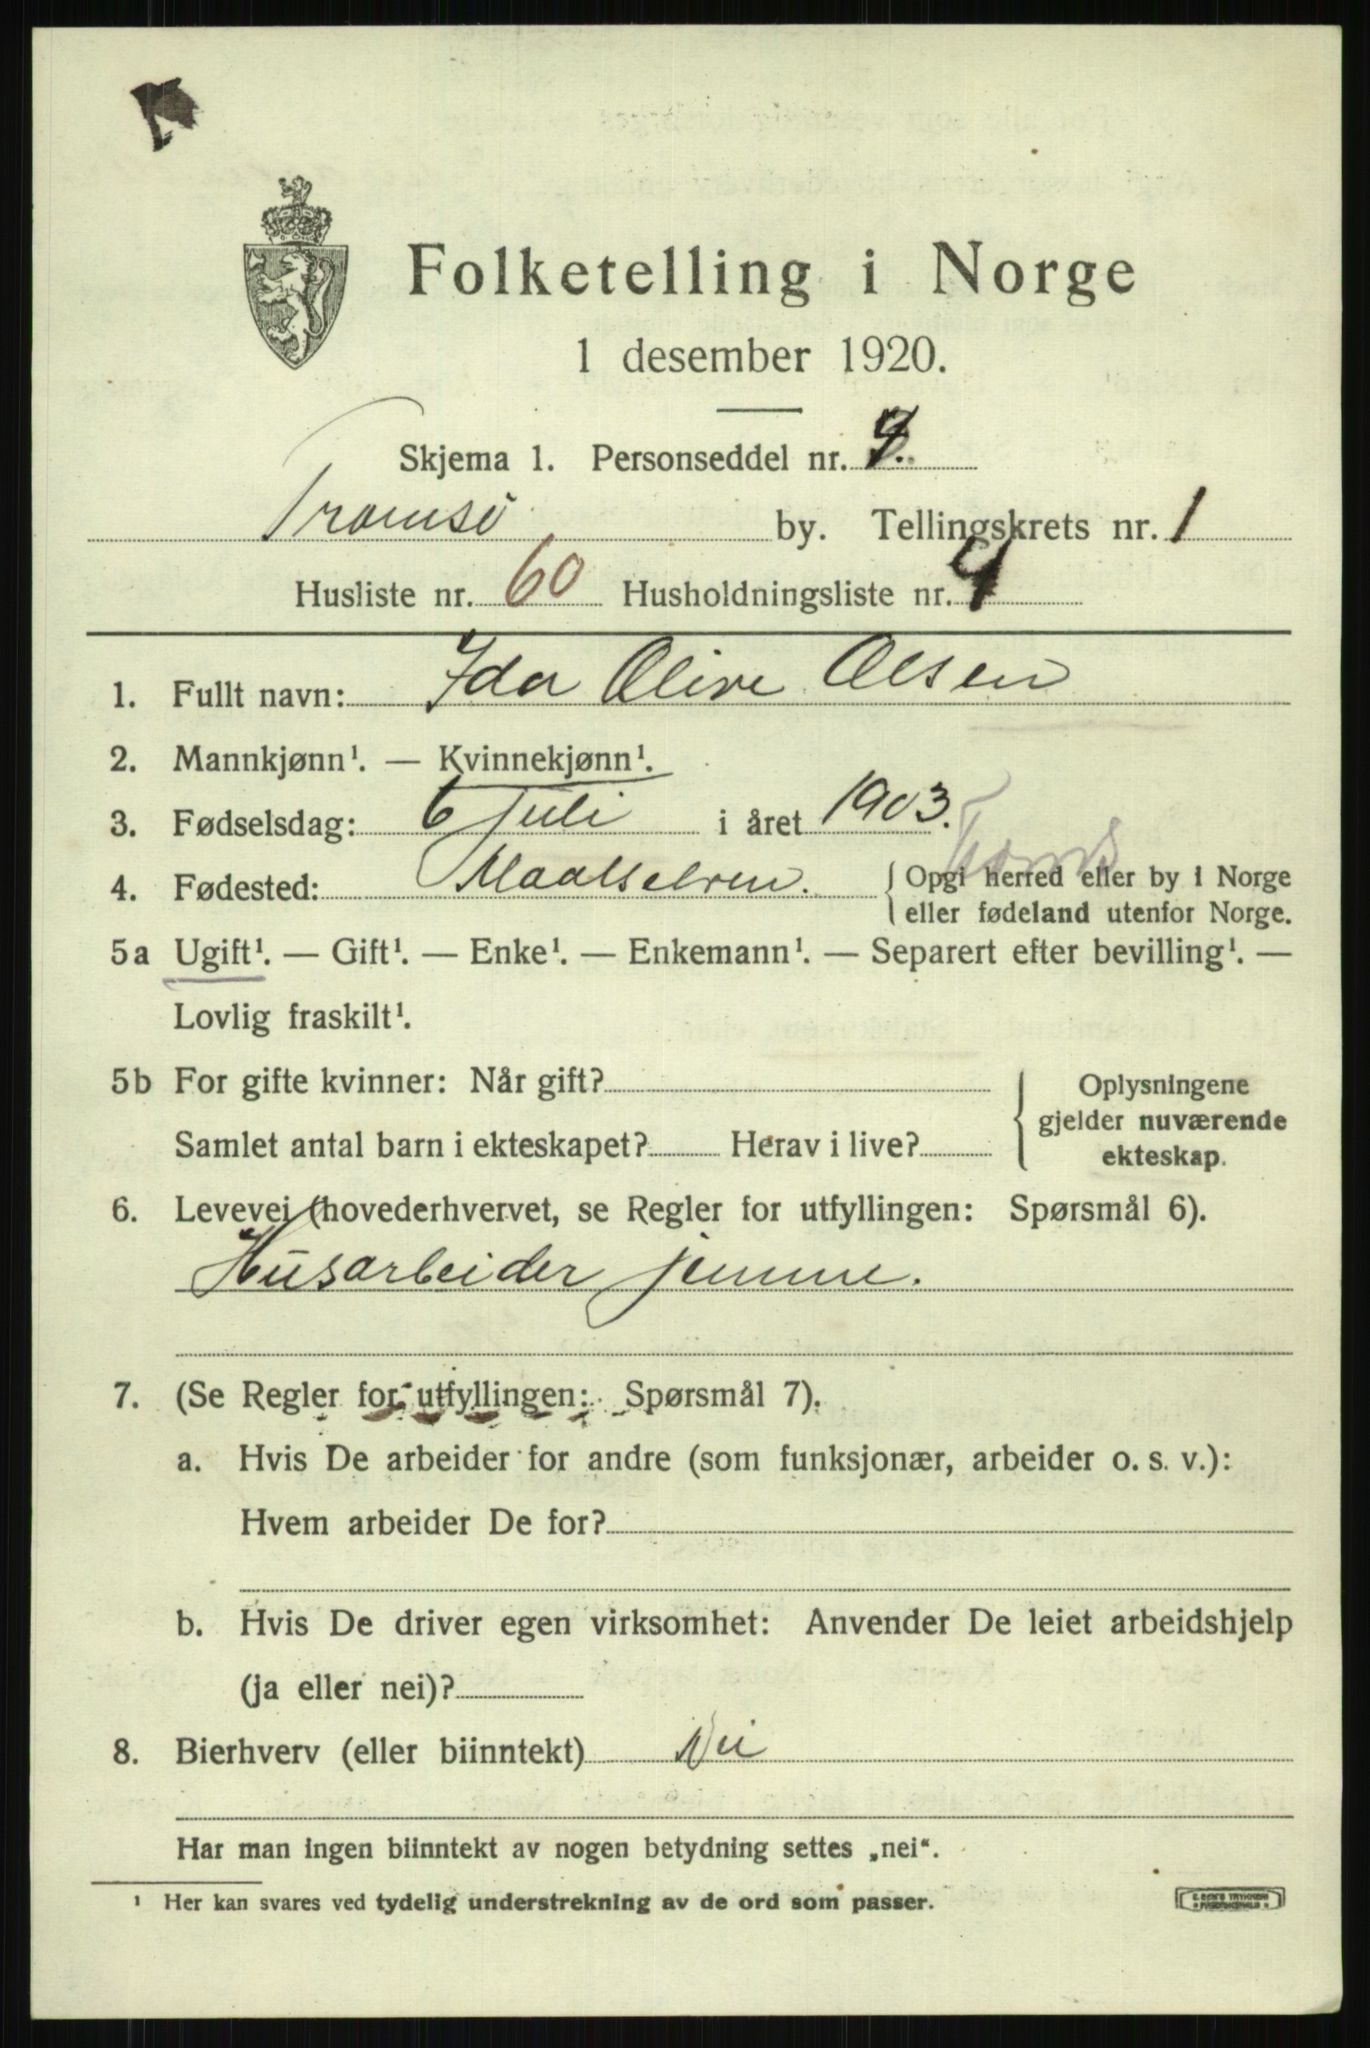 Folketelling i Norge
1 desember 1920.
Skjema 1. Personseddel nr.
Tromsø by. Tellingskrets nr. 1
Husliste nr. 60 Husholdningsliste nr. 4
1. Fullt navn: Ida Olive Olsen
2. Mannkjønn¹. — Kvinnekjønn¹.
3. Fødselsdag: 6 Juli i året 1903.
Troms
4. Fødested: Maalselven. Opgi herred eller by i Norge
eller fødeland utenfor Norge.
5a Ugift¹. — Gift¹. — Enke¹. — Enkemann¹. — Separert efter bevilling¹. —
Lovlig fraskilt¹.
5b For gifte kvinner: Når gift? Oplysningene
gjelder nuværende
Samlet antal barn i ekteskapet? Herav i live? ekteskap.
6. Levevei (hovederhvervet, se Regler for utfyllingen: Spørsmål 6).
Husarbeider jemme.
7. (Se Regler for utfyllingen: Spørsmål 7).
a. Hvis De arbeider for andre (som funksjonær, arbeider o. s. v.):
Hvem arbeider De for?
b. Hvis De driver egen virksomhet: Anvender De leiet arbeidshjelp
(ja eller nei)?
8. Bierhverv (eller biinntekt) Nei
Har man ingen biinntekt av nogen betydning settes „nei“.
¹ Her kan svares ved tydelig understrekning av de ord som passer.